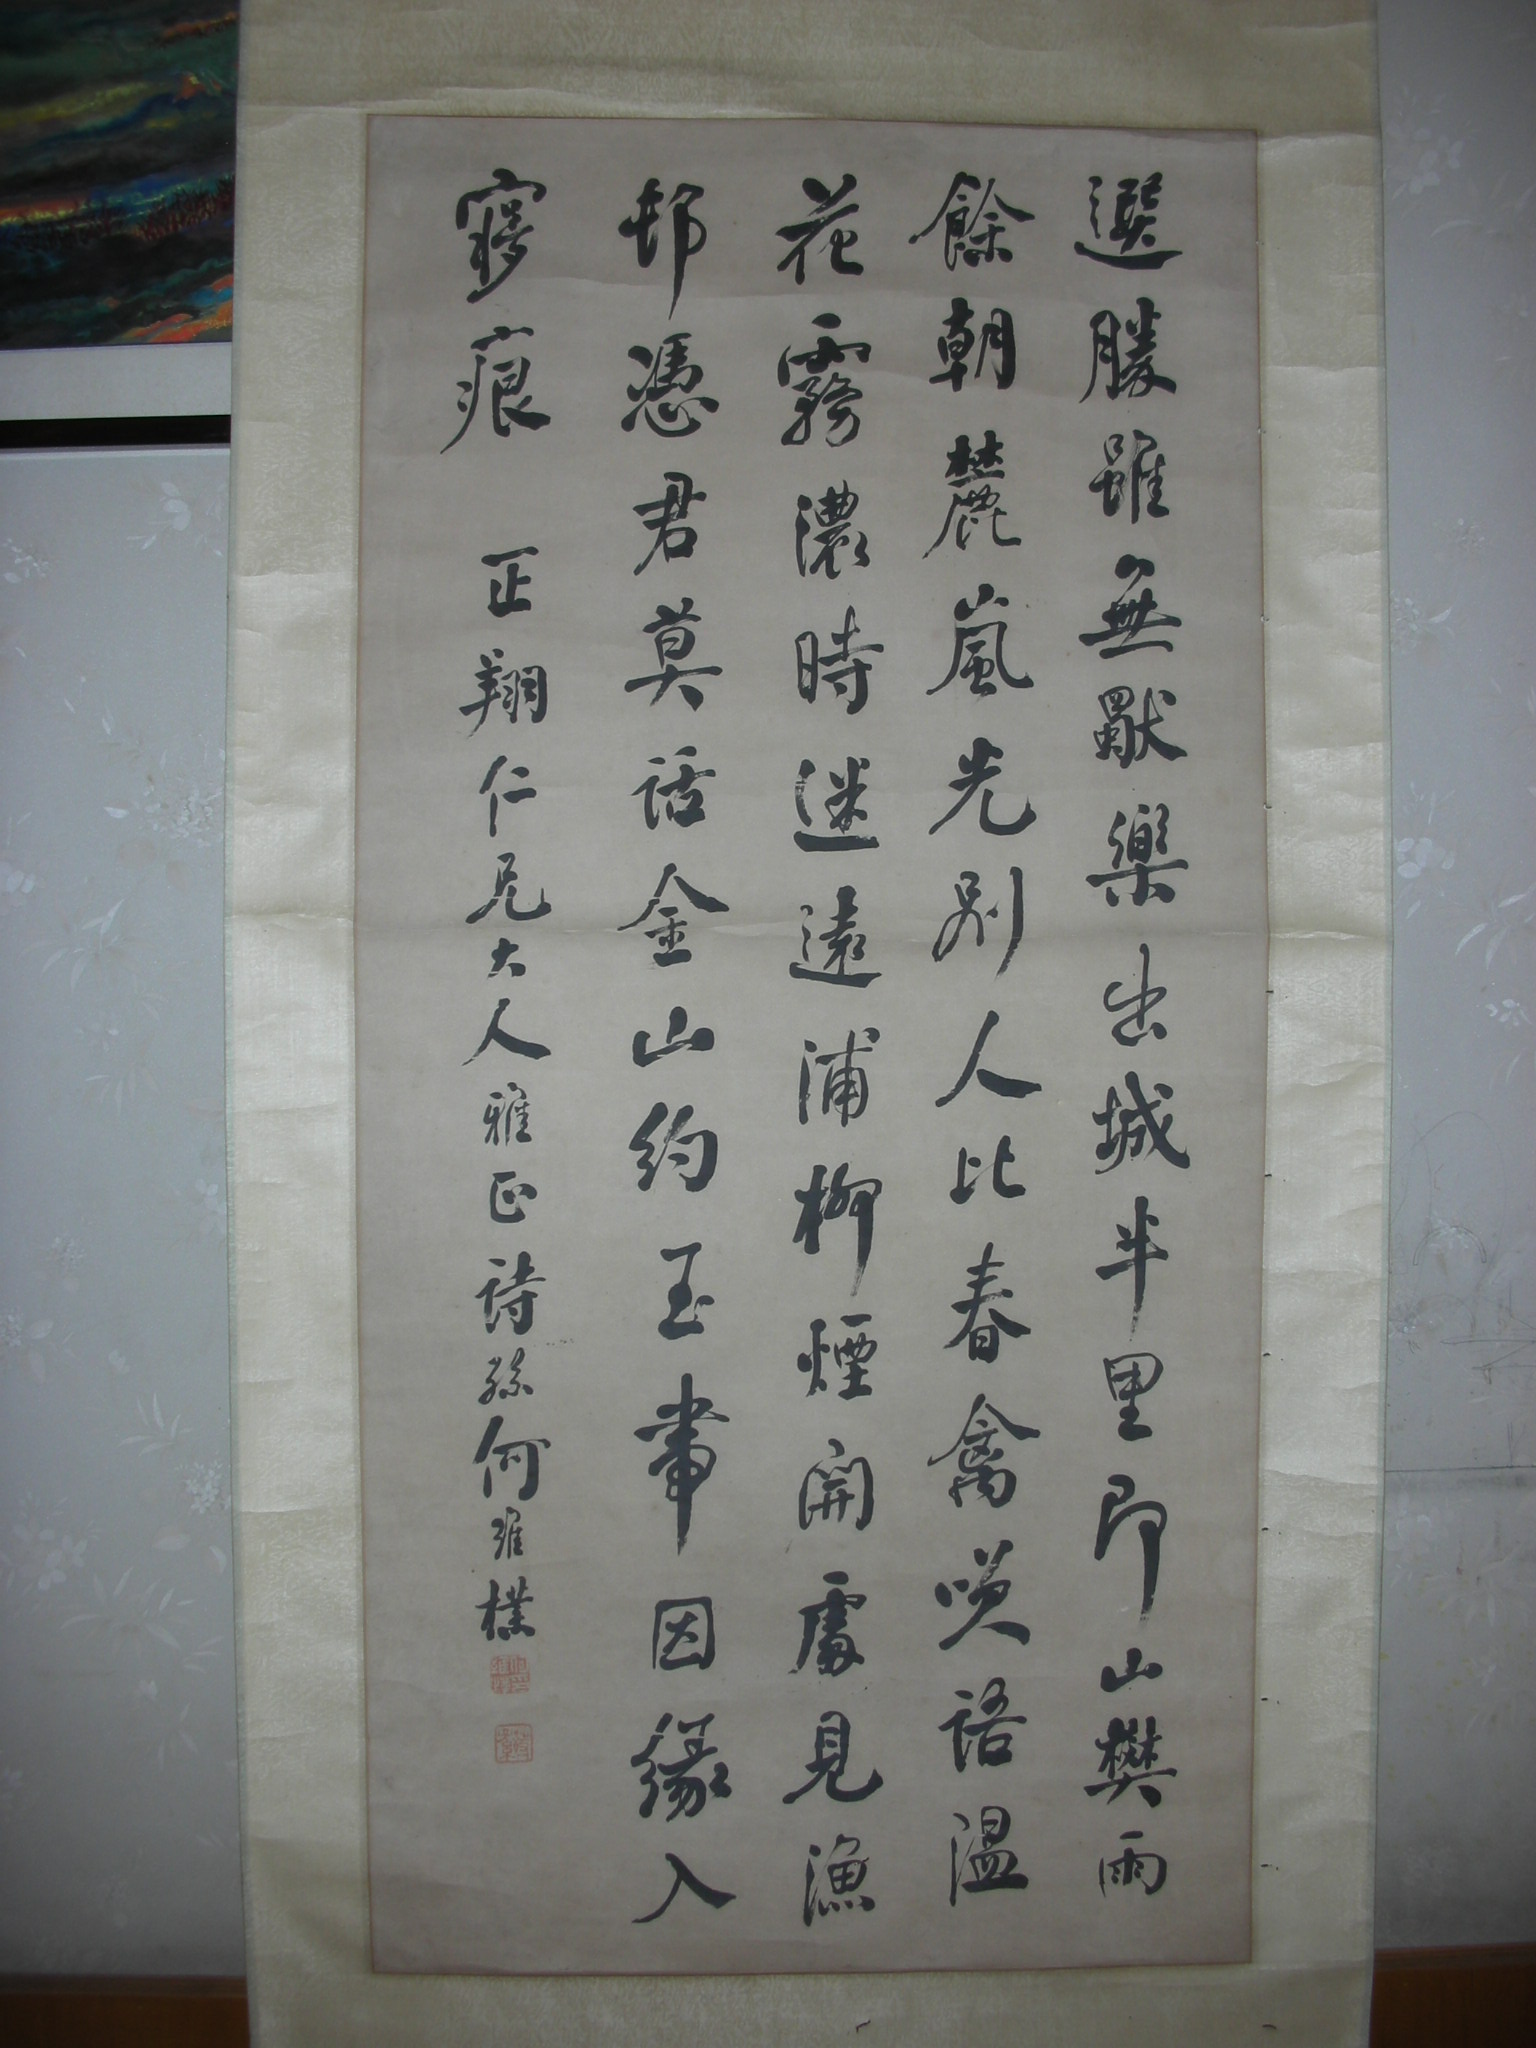 選勝雖無獸樂出城半里即山樊雨
餘朝麓嵐光別人比春禽笑語溫
花霧濃時迷遠浦柳煙開處見漁
邨憑君莫話金山約玉帶因緣入
夢痕 正翔仁兄大人雅正詩孫何維樸